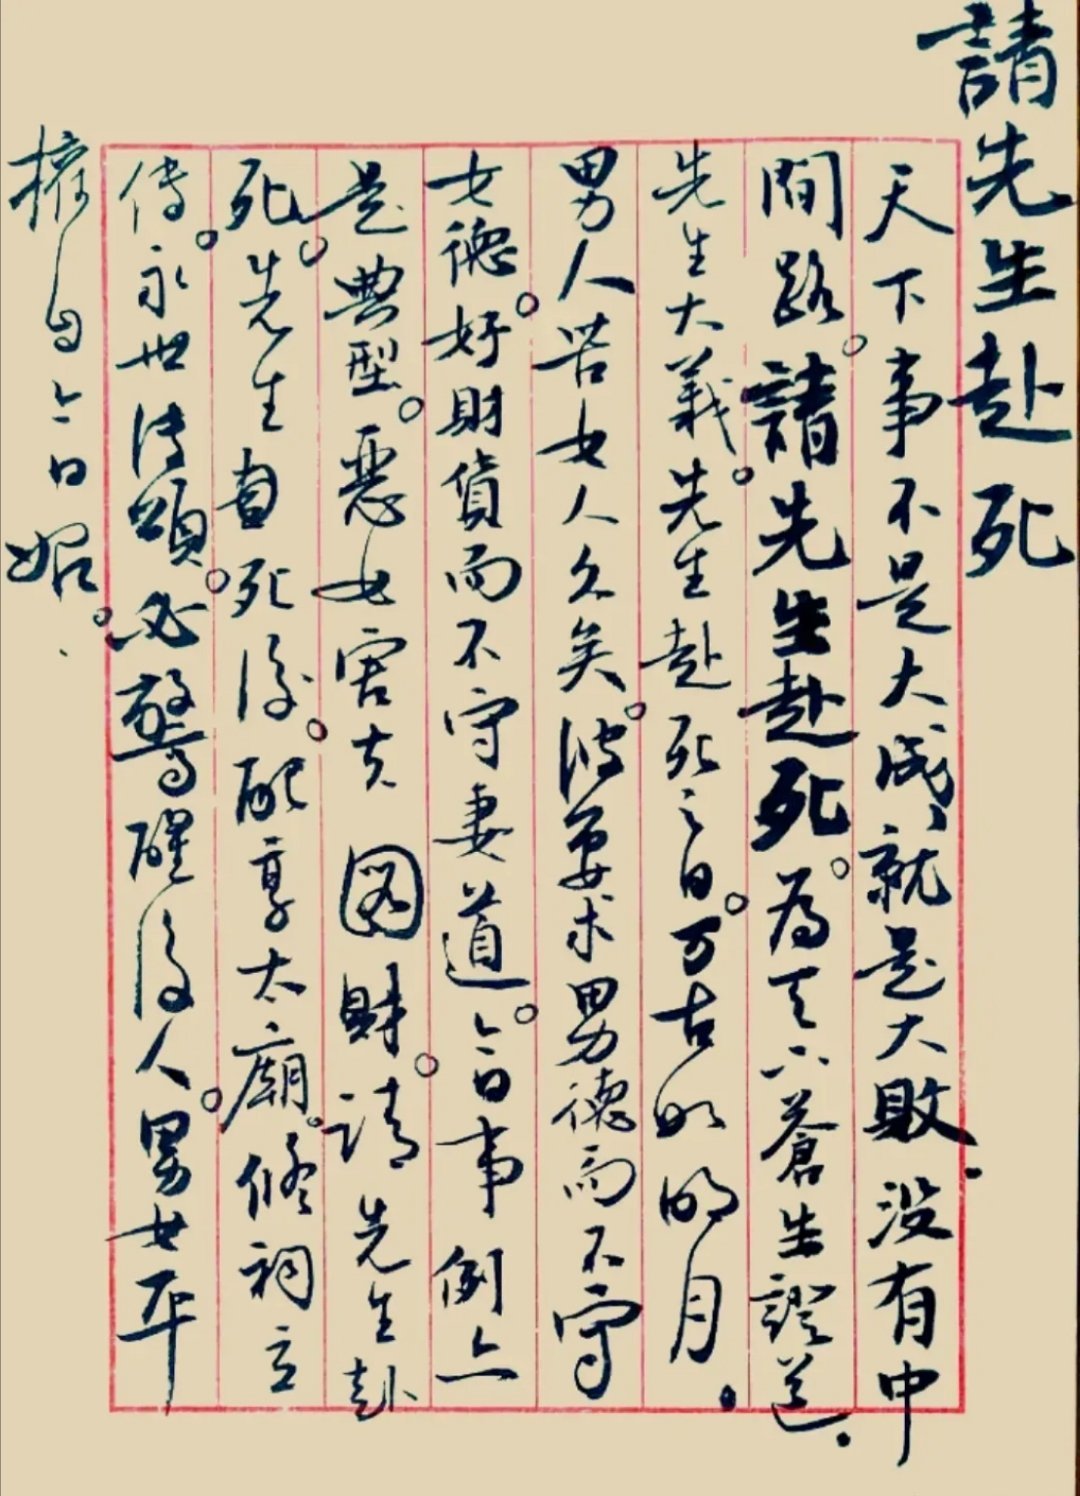 請先生赴死
天下事不是大成就是大敗.没有中
間路。請先生赴死。為天下蒼生證道.
先生大義。先生赴死之日。万古如明月.
男人苦女人久矣。彼要求男德而不守
女德。好財貨而不守妻道。今日事例亦
是典型。惡女害夫 图財。请先生赴
死。先生自死後。配享太廟.修祠立
傳。永世传頌。必警醒後人。男女平
摘自今日